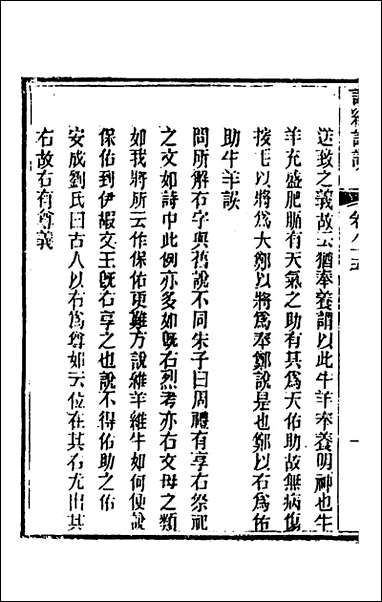 送致之義故云猶奉養謂以此牛羊奉養明神也牛
羊充盛肥腯有天氣之助有其為天佑助故無病傷
按毛以將為大鄭以將為奉鄭說是也鄭以右為佑
助牛羊誤
問所解右字與舊說不同朱子曰周禮有享右祭祀
之文如詩中此例亦多如既右烈考亦右文母之類
如我將所云作保佑更難方說維羊維牛如何便說
保佑到伊嘏文王既右享之也說不得佑助之佑
安成劉氏曰古人以右為尊如云位在其右尤出其
右故右有尊義